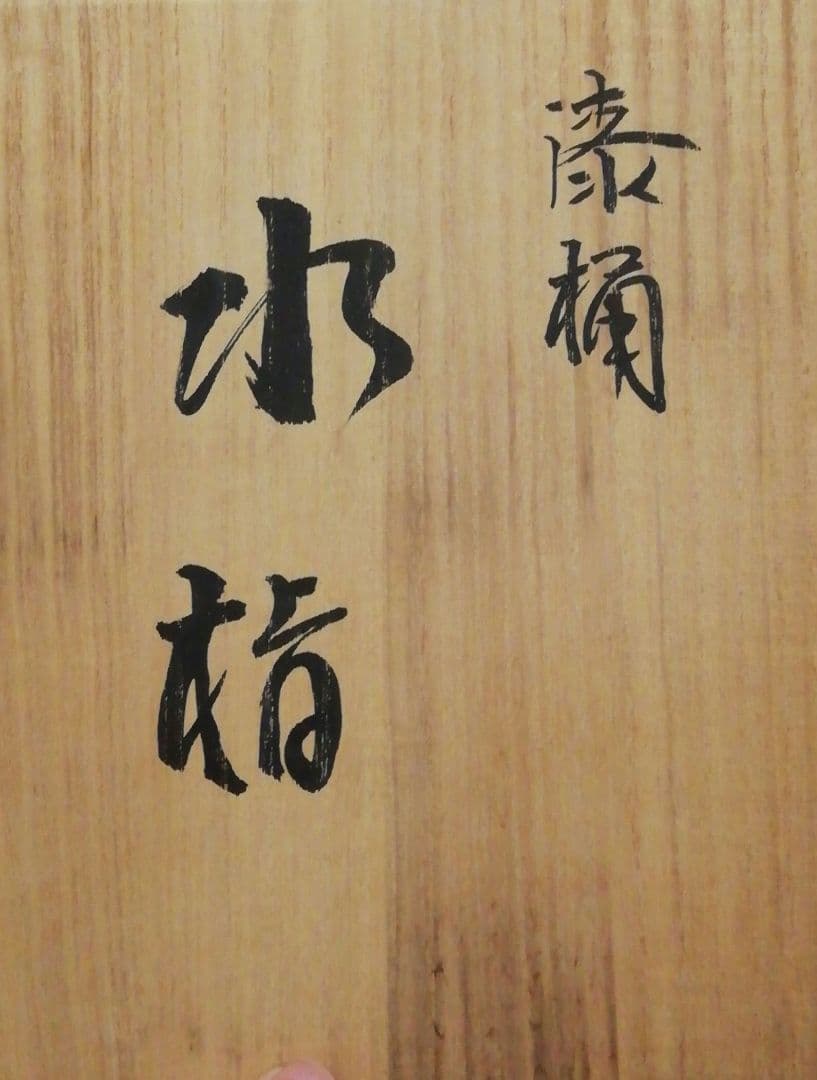 漆桶
水指